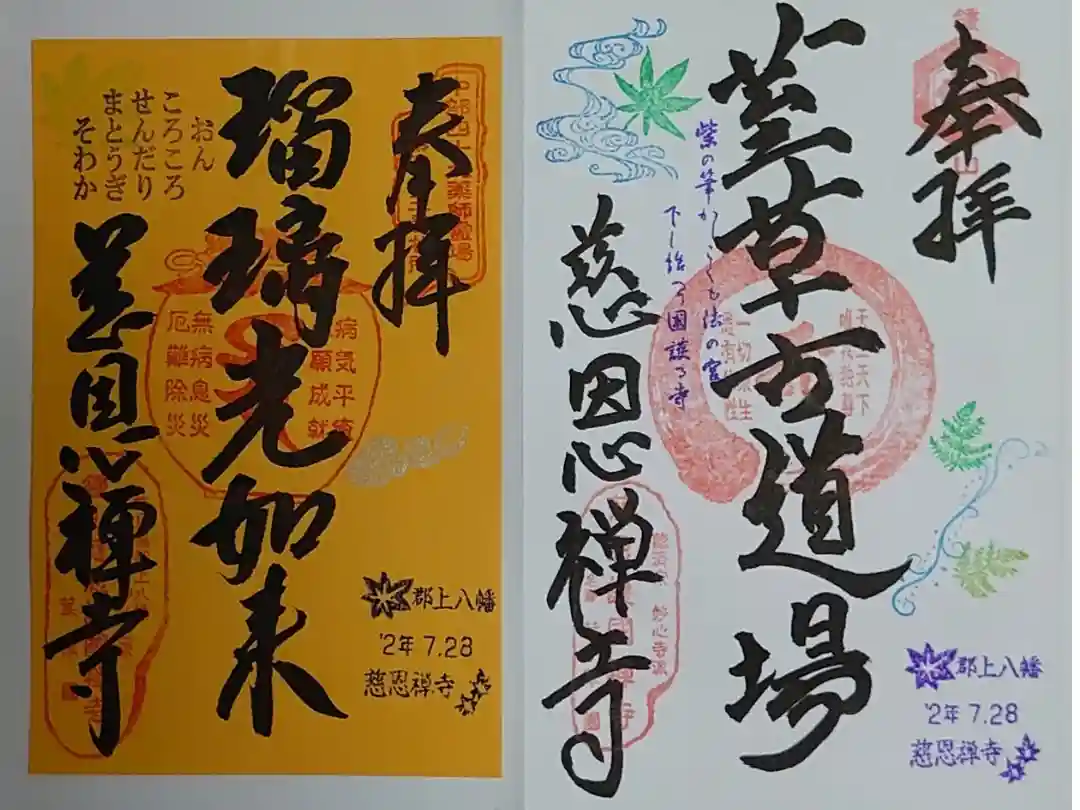 奉拝
瑠璃光如来
おん
ころころ
せんだり
まとうぎ
そわか
慈恩禅寺
病気平癒
願成就
無病息災
厄難除災
郡上八幡
'2年7.28
慈恩禅寺
奉拝
草
道場
紫の筆
法の宮
下し給
國護る寺
慈恩禅寺
天上天下
一切衆生
妙心寺派
郡上八幡
'2年7.28
慈恩禅寺